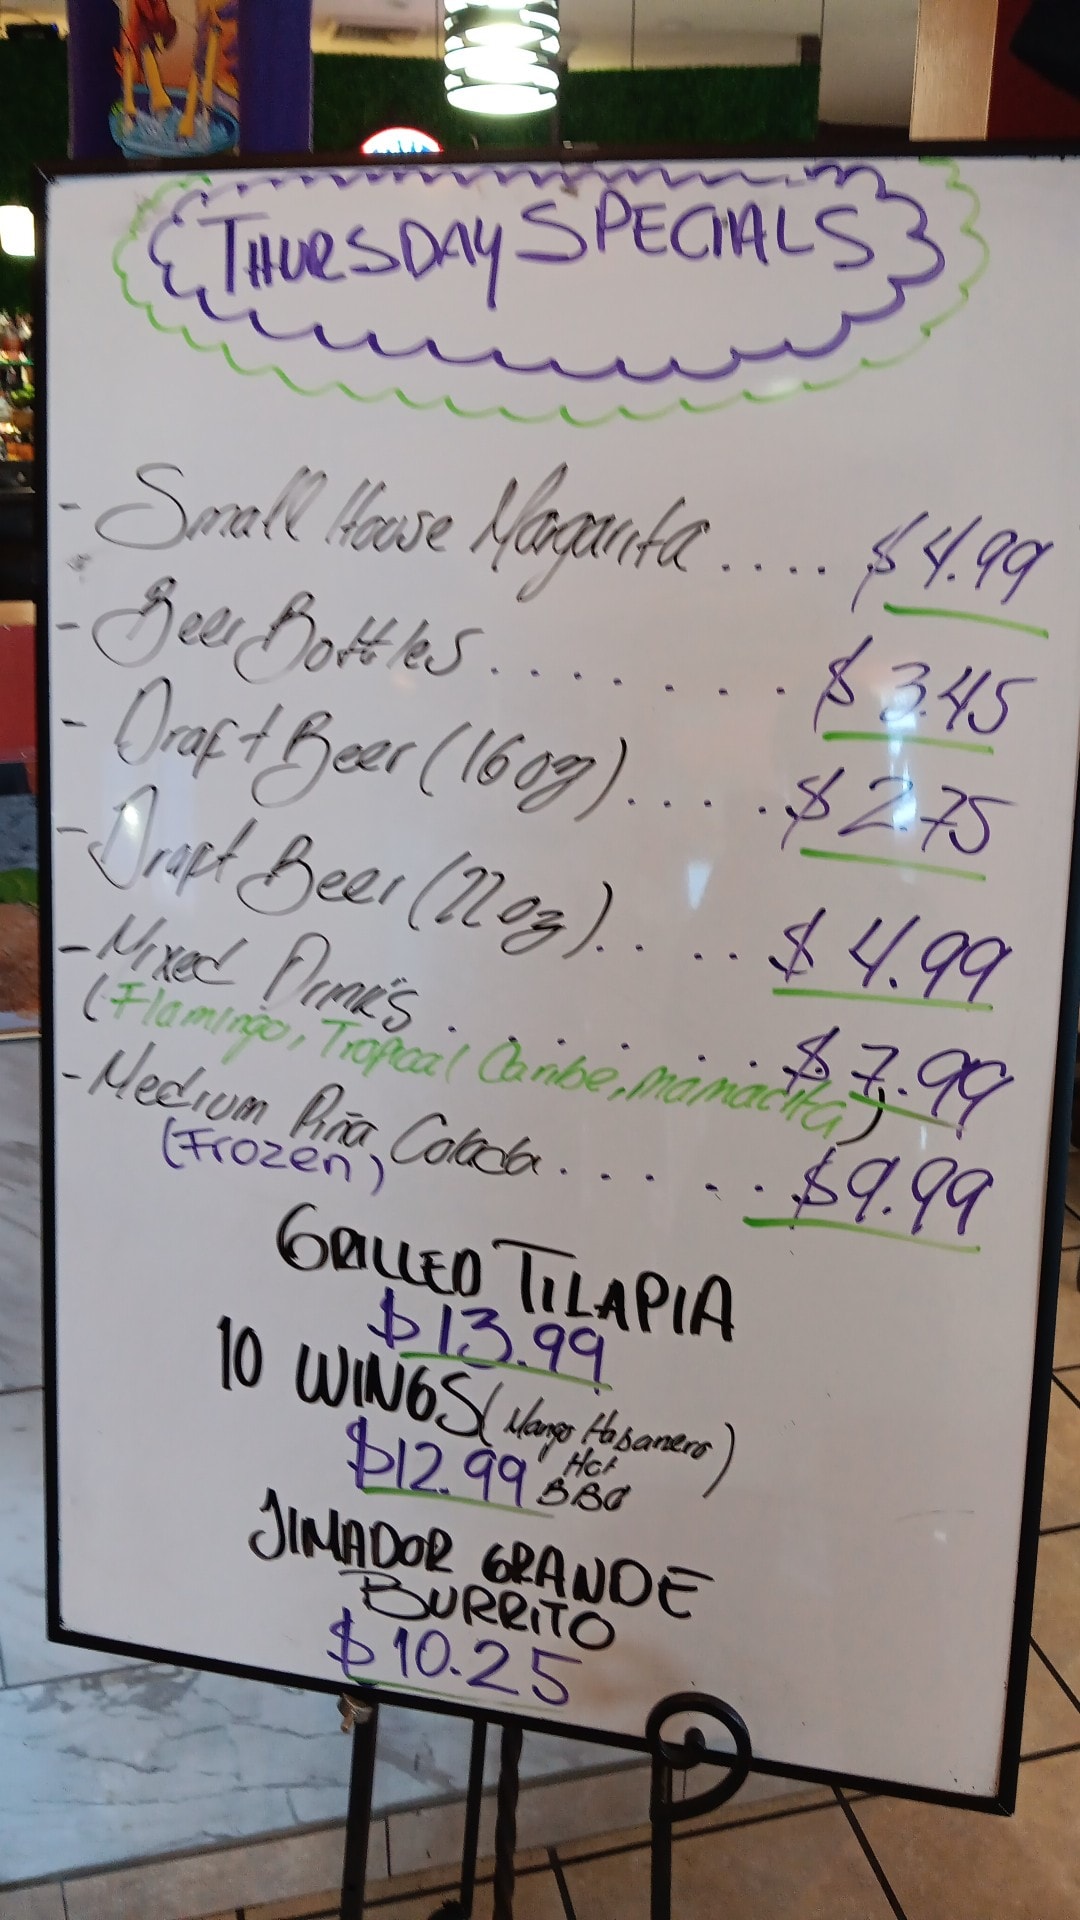 THURSDAY SPECIALS
- Small House Margarita .... $4.99
- Beer Bottles ....... $3.45
- Draft Beer (16oz) .... $2.75
- Draft Beer (22oz) .... $4.99
- Mixed Drinks ...... $7.99
(Flamingo, Tropical Caribe, mamacita)
- Medium Piña Colada ..... $9.99
(Frozen)
GRILLED TILAPIA
$13.99
10 WINGS (Mango Habanero)
Hot
$12.99 BBQ
JIMADOR GRANDE
BURRITO
$10.25